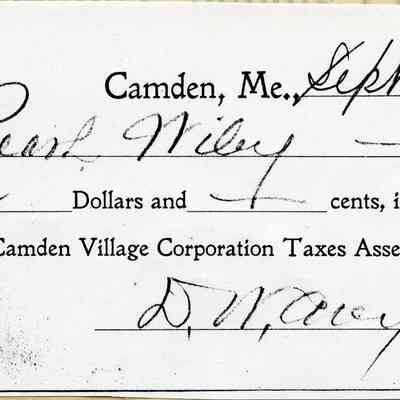 Camden, Me., Sept
Pearl Wiley
Dollars and — cents, i
Camden Village Corporation Taxes Asse
D. W.